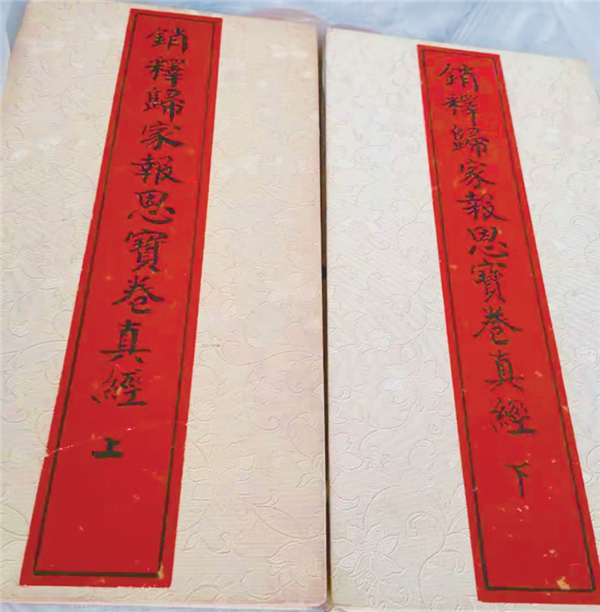 銷釋歸家報恩寶卷真經 上
銷釋歸家報恩寶卷真經 下